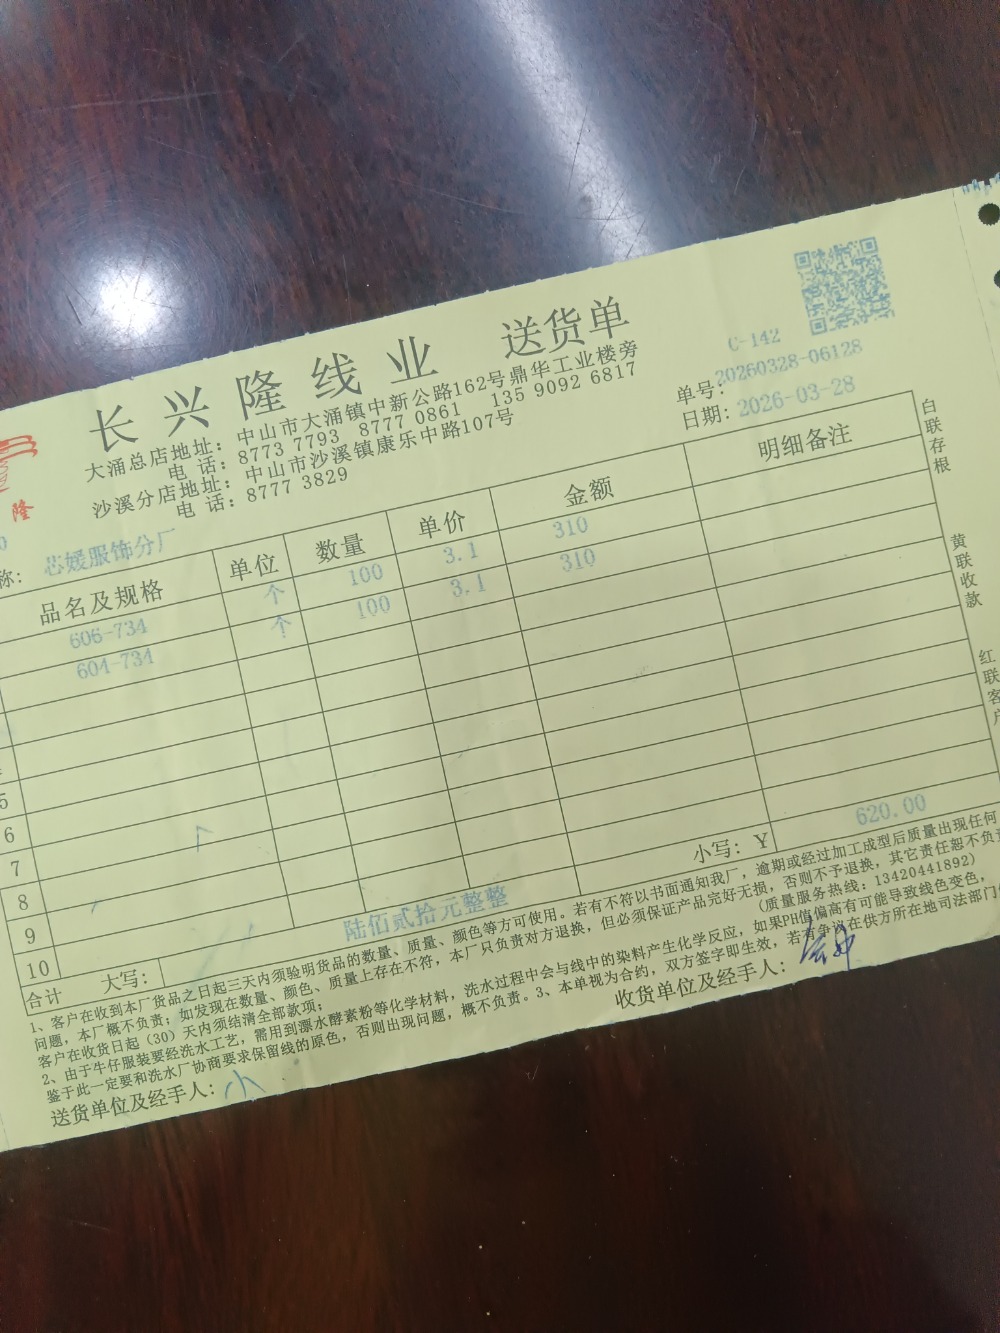 长兴隆线业 送货单
大涌总店地址：中山市大涌镇中新公路162号鼎华工业楼旁
电 话：8773 7793 8777 0861 135 9092 6817
沙溪分店地址：中山市沙溪镇康乐中路107号
电 话：8777 3829
C-142
单号：20260328-06128
日期：2026-03-28
隆
称：芯媛服饰分厂
品名及规格 单位 数量 单价 金额 明细备注
606-734 个 100 3.1 310
604-734 个 100 3.1 310
5
6
7
8
9
10
合计 大写：陆佰贰拾元整整 小写：￥ 620.00
1、客户在收到本厂货品之日起三天内须验明货品的数量、质量、颜色等方可使用。若有不符以书面通知我厂，逾期或经过加工成型后质量出现任何
问题，本厂概不负责；如发现在数量、颜色、质量上存在不符，本厂只负责对方退换，但必须保证产品完好无损，否则不予退换，其它责任恕不负责
客户在收货日起（30）天内须结清全部款项； （质量服务热线：13420441892）
2、由于牛仔服装要经洗水工艺，需用到漂水酵素粉等化学材料，洗水过程中会与线中的染料产生化学反应，如果PH值偏高有可能导致线色变色，
鉴于此一定要和洗水厂协商要求保留线的原色，否则出现问题，概不负责。3、本单视为合约，双方签字即生效，若有争议在供方所在地司法部门
送货单位及经手人：小 收货单位及经手人：
白联存根
黄联收款
红联客户